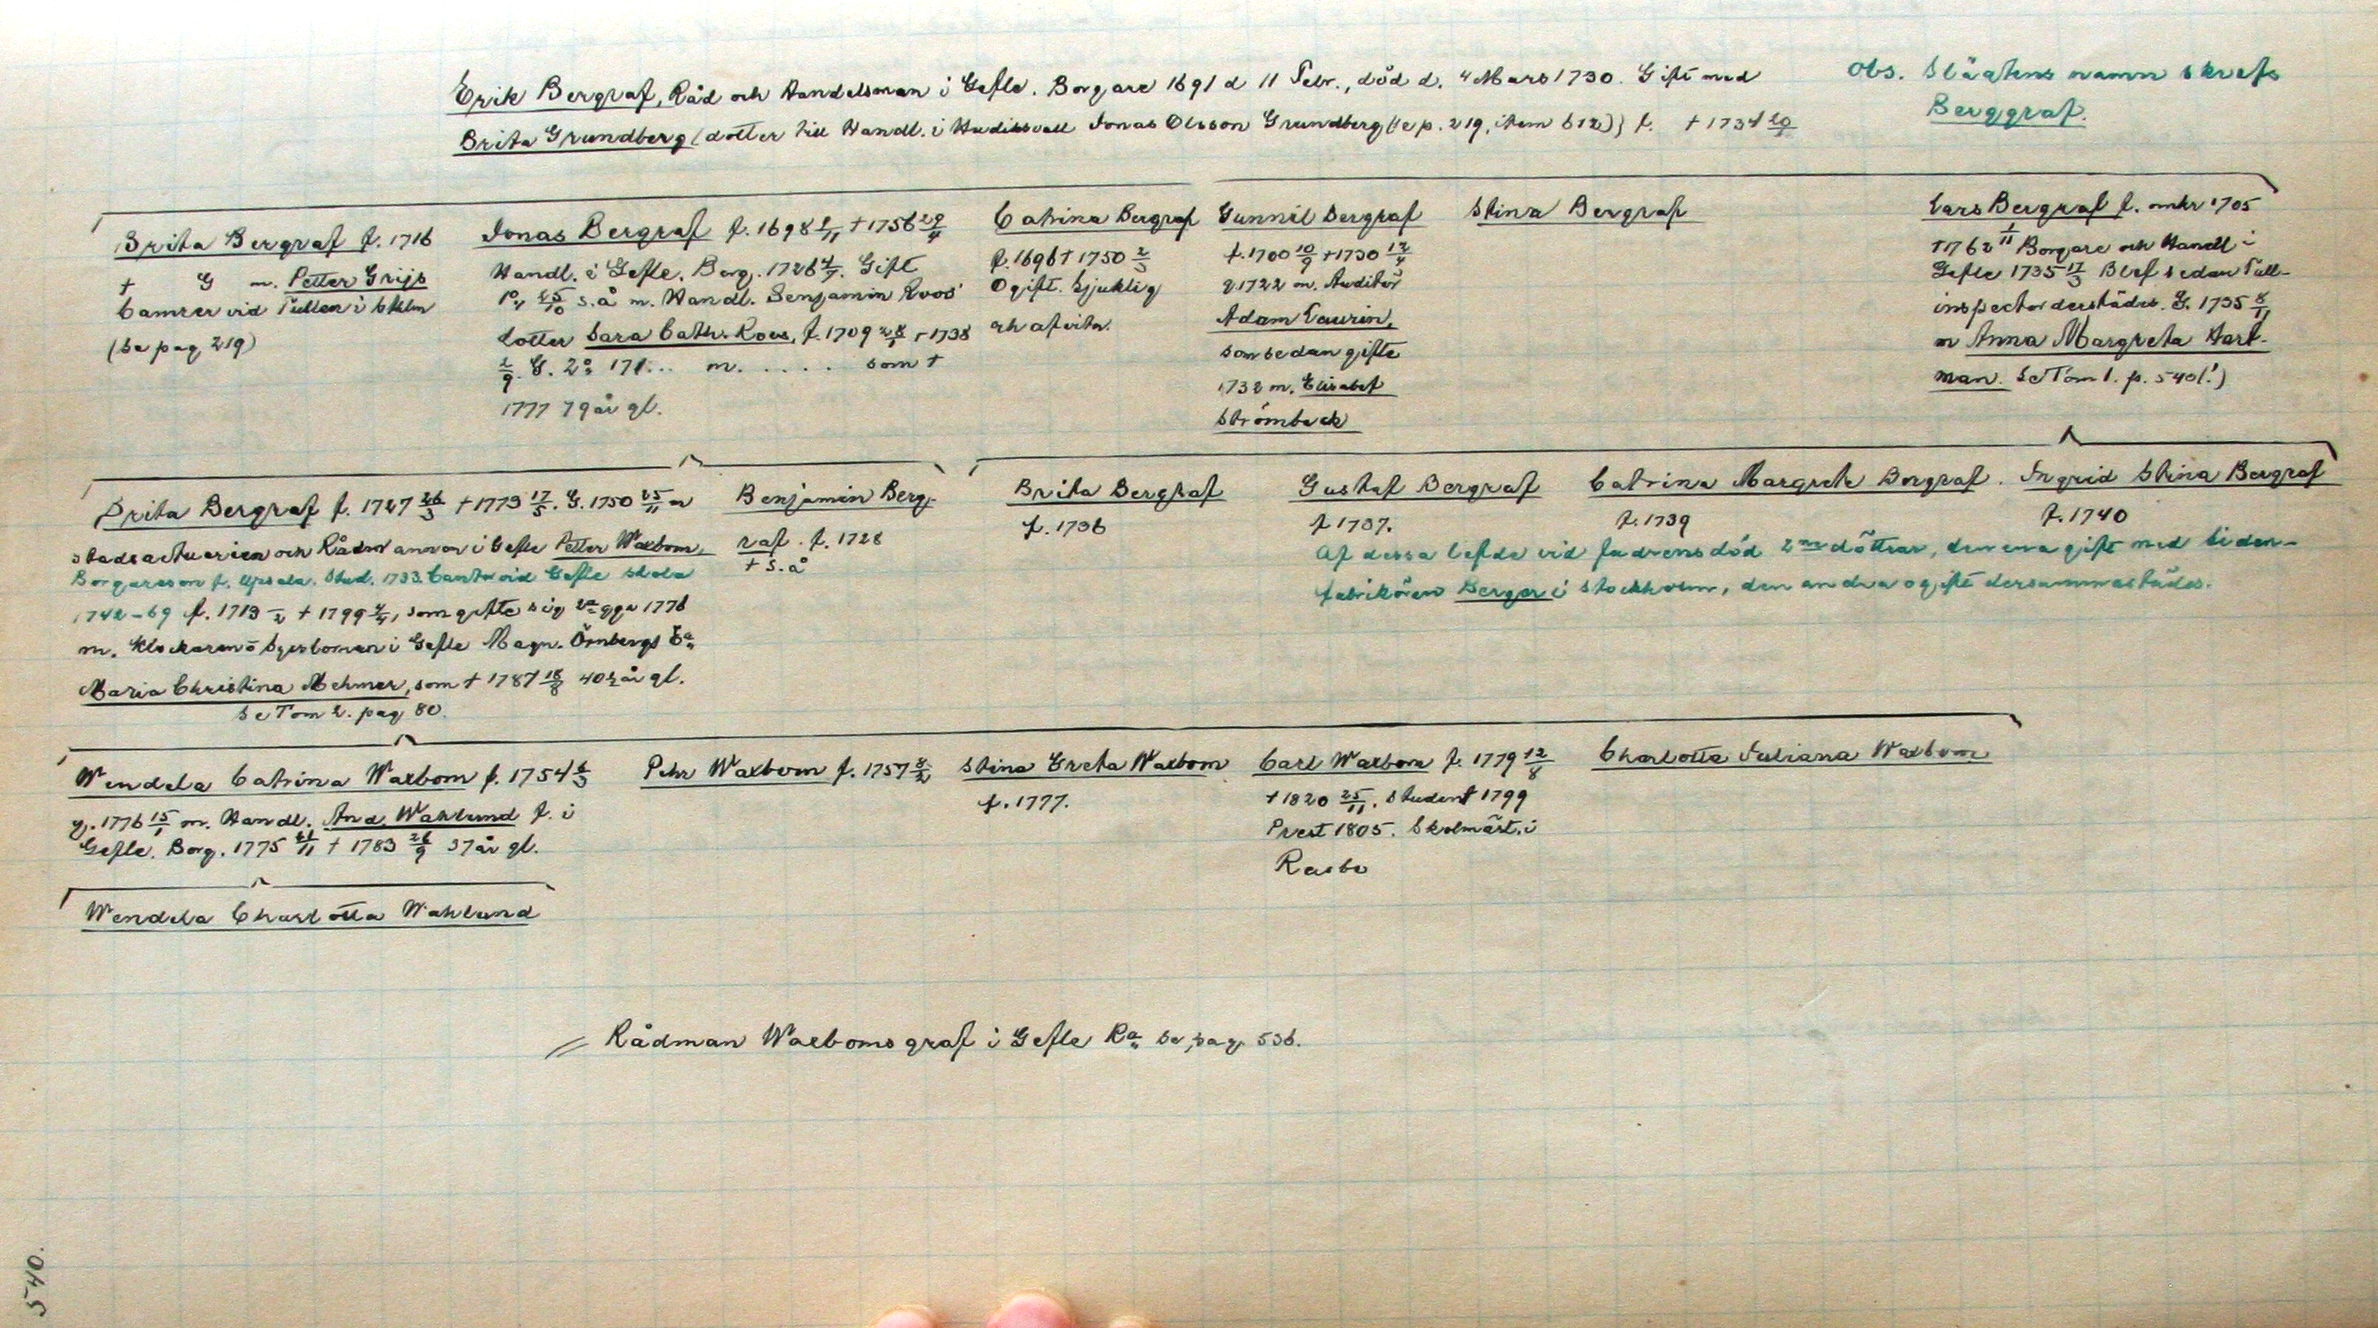 Erik Bergraf, Råd och Handelsman i Gefle. Borgare 1691 d 11 Febr., död d. 4 Mars 1730. Gift med
Brita Grundberg (dotter till Handl. i Hudiksvall Jonas Olsson Grundberg (se p. 219, item 612)) f. † 1734 20/
Obs. Släktens namn skrefs
Berggraf.
Brita Bergraf f. 1716
† G m. Petter Grijs
Camrer vid Tullen i Sthlm
(Se pag 219)
Jonas Bergraf f. 1698 /11 † 1756 29/4
Handl. i Gefle. Borg. 1726 4/7. Gift
1o, 25/10 s.å m. Handl. Benjamin Roos'
dotter Sara Cath. Roos, f. 1709 28/1 † 1738
2/9. G. 2o: 171... m. . . . . . som †
1777 79 år gl.
Catrina Bergraf
f. 1696 † 1750 2/3
Ogift. Sjuklig
och afvita.
Gunnil Bergraf
f. 1700 10/9 † 1730 12/4
g. 1722 m. Auditör
Adam Laurin,
som sedan gifte
1732 m. Elisabet
Strömbeck
Stina Bergraf
Lars Bergraf f. omkr 1705
† 1762 1/11 Borgare och Handl i
Gefle 1735 17/3 Blef sedan Tull-
inspector derstädes. G. 1735 8/11
m Anna Margreta Hart-
man. Se Tom 1. p. 540(!)
Brita Bergraf f. 1727 26/3 † 1773 17/5. G. 1750 25/11 m
stadsactuarien och Rådmannen i Gefle Petter Waxbom,
Borgareson f. Upsala. Stud. 1733. Cantor vid Gefle skola
1742-69 f. 1713 /2 † 1799 4/4, som gifte sig 2a gga 1776
m. Klockarens Sperlomen i Gefle Magn. Örnbergs Ea
Maria Christina Mehmer, som † 1787 18/8 40½ år gl.
Se Tom 2. pag 80.
Benjamin Berg-
raf. f. 1728
† s.å
Brita Bergraf
f. 1736
Gustaf Bergraf
f 1737.
Catrina Margreta Bergraf.
f. 1739
Ingrid Stina Bergraf
f. 1740
Af dessa lefde vid fadrens död 2ne döttrar, den ena gift med Siden-
fabrikören Berger i Stockholm, den andra ogift dersammastädes.
Wendela Catrina Waxbom f. 1754 6/3
g. 1776 15/1 m. Handl. And. Wahlund f. i
Gefle. Borg. 1775 21/11 † 1783 26/9 37 år gl.
Pehr Waxbom f. 1757 8/2
Stina Greta Waxbom
f. 1777.
Carl Waxbom f. 1779 12/8
† 1820 25/11. Student 1799
Prest 1805. Skolmäst. i
Rasbo
Charlotta Juliana Waxbom
Wendela Charlotta Wahlund
Rådman Waxboms graf i Gefle Ra se pag. 536.
540.